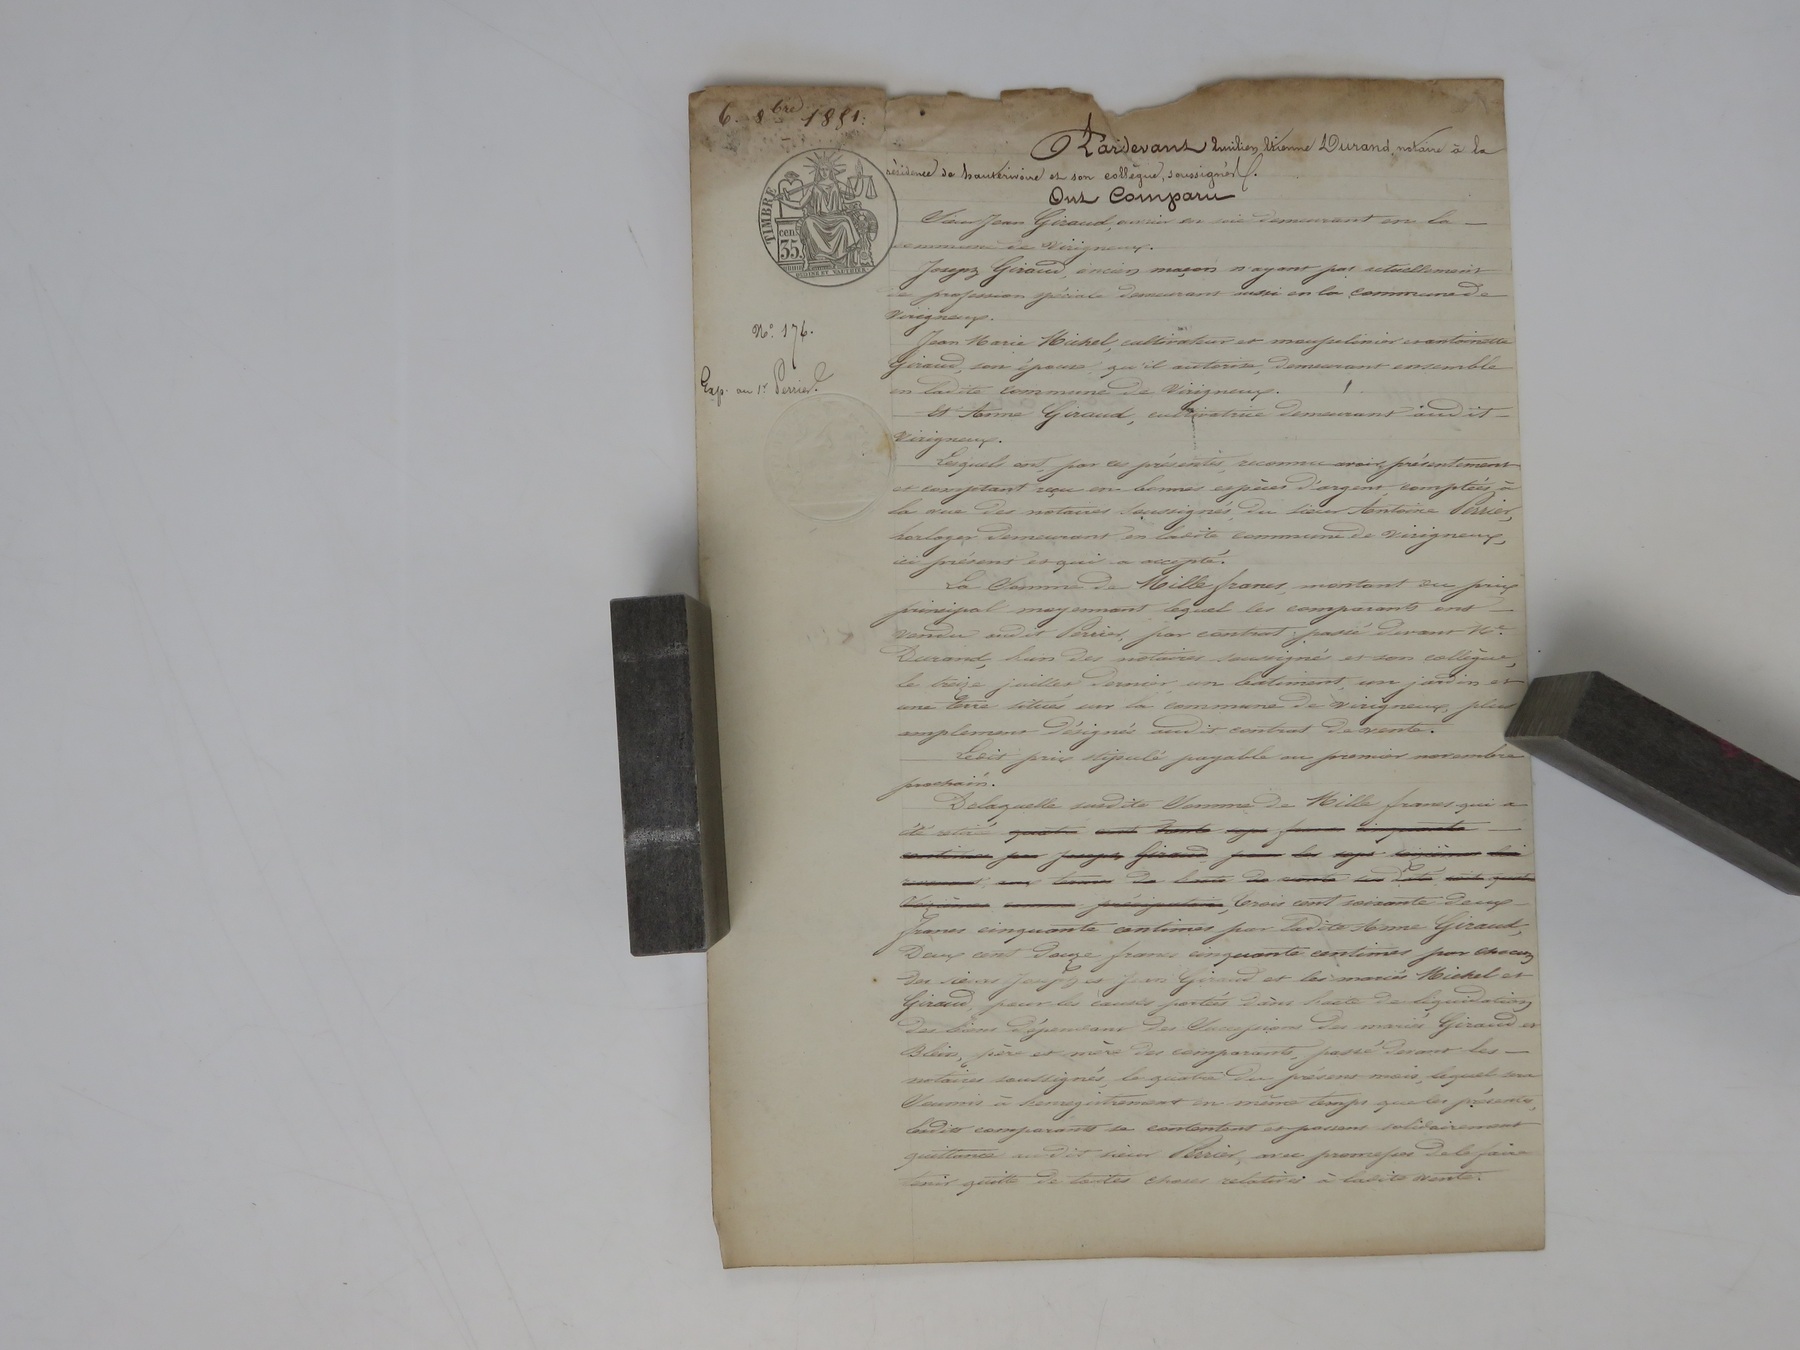 6. 8bre 1851.
Pardevant Emilien Etienne Durand, notaire à la
résidence de hauterivoire et son collègue, soussignés.
Ont Comparu
TIMBRE
35 cen.
Sieur Jean Giraud, ouvrier en soie demeurant en la
commune de Virigneux.
Joseph Giraud, ancien maçon n'ayant pas actuellement
de profession spéciale demeurant aussi en la commune de
Virigneux.
N° 176.
Jean Marie Michel, cultivateur et mousselinier et antoinette
Giraud, son épouse, qu'il autorise, demeurant ensemble
Exp. au Sr Perrier
en ladite commune de Virigneux.
Et Anne Giraud, cultivatrice demeurant audit
Virigneux.
Lesquels ont, par ces présentes, reconnu avoir présentement
et comptant reçu en bonnes espèces d'argent, comptées à
la vue des notaires soussignés, du sieur Antoine Perrier,
horloger demeurant en ladite commune de Virigneux,
ici présent et qui a accepté.
La Somme de Mille francs, montant du prix
principal moyennant lequel les comparants ont
vendu audit Perrier, par contrat passé devant Me
Durand, l'un des notaires soussignés et son collègue,
le treize juillet dernier, un batiment, un jardin et
une terre situés sur la commune de Virigneux, plus
amplement désignés audit contrat de vente.
Ledit prix stipulé payable au premier novembre
prochain.
Delaquelle susdite Somme de Mille francs qui a
été retiré quatre cent trente sept francs cinquante
centimes par joseph Giraud pour les sept seizièmes lui
revenant, aux termes de l'acte de vente susdaté, soit quatre
seizièmes comme préciputaire, trois cent soixante deux
francs cinquante centimes par ladite Anne Giraud,
Deux cent douze francs cinquante centimes par chacun
des sieurs Joseph et Jean Giraud et les mariés Michel et
Giraud, pour les causes portées dans l'acte de liquidation
des biens dépendant des Successions des mariés Giraud et
père et mère des comparants, passé devant les
notaires soussignés, le quatre du présent mois, lequel sera
Soumis à l'enregistrement en même temps que les présentes,
lesdits comparants se contentent et passent solidairement
quittance audit sieur Perrier, avec promesses de le faire
tenir quitte de toutes choses relatives à ladite vente.